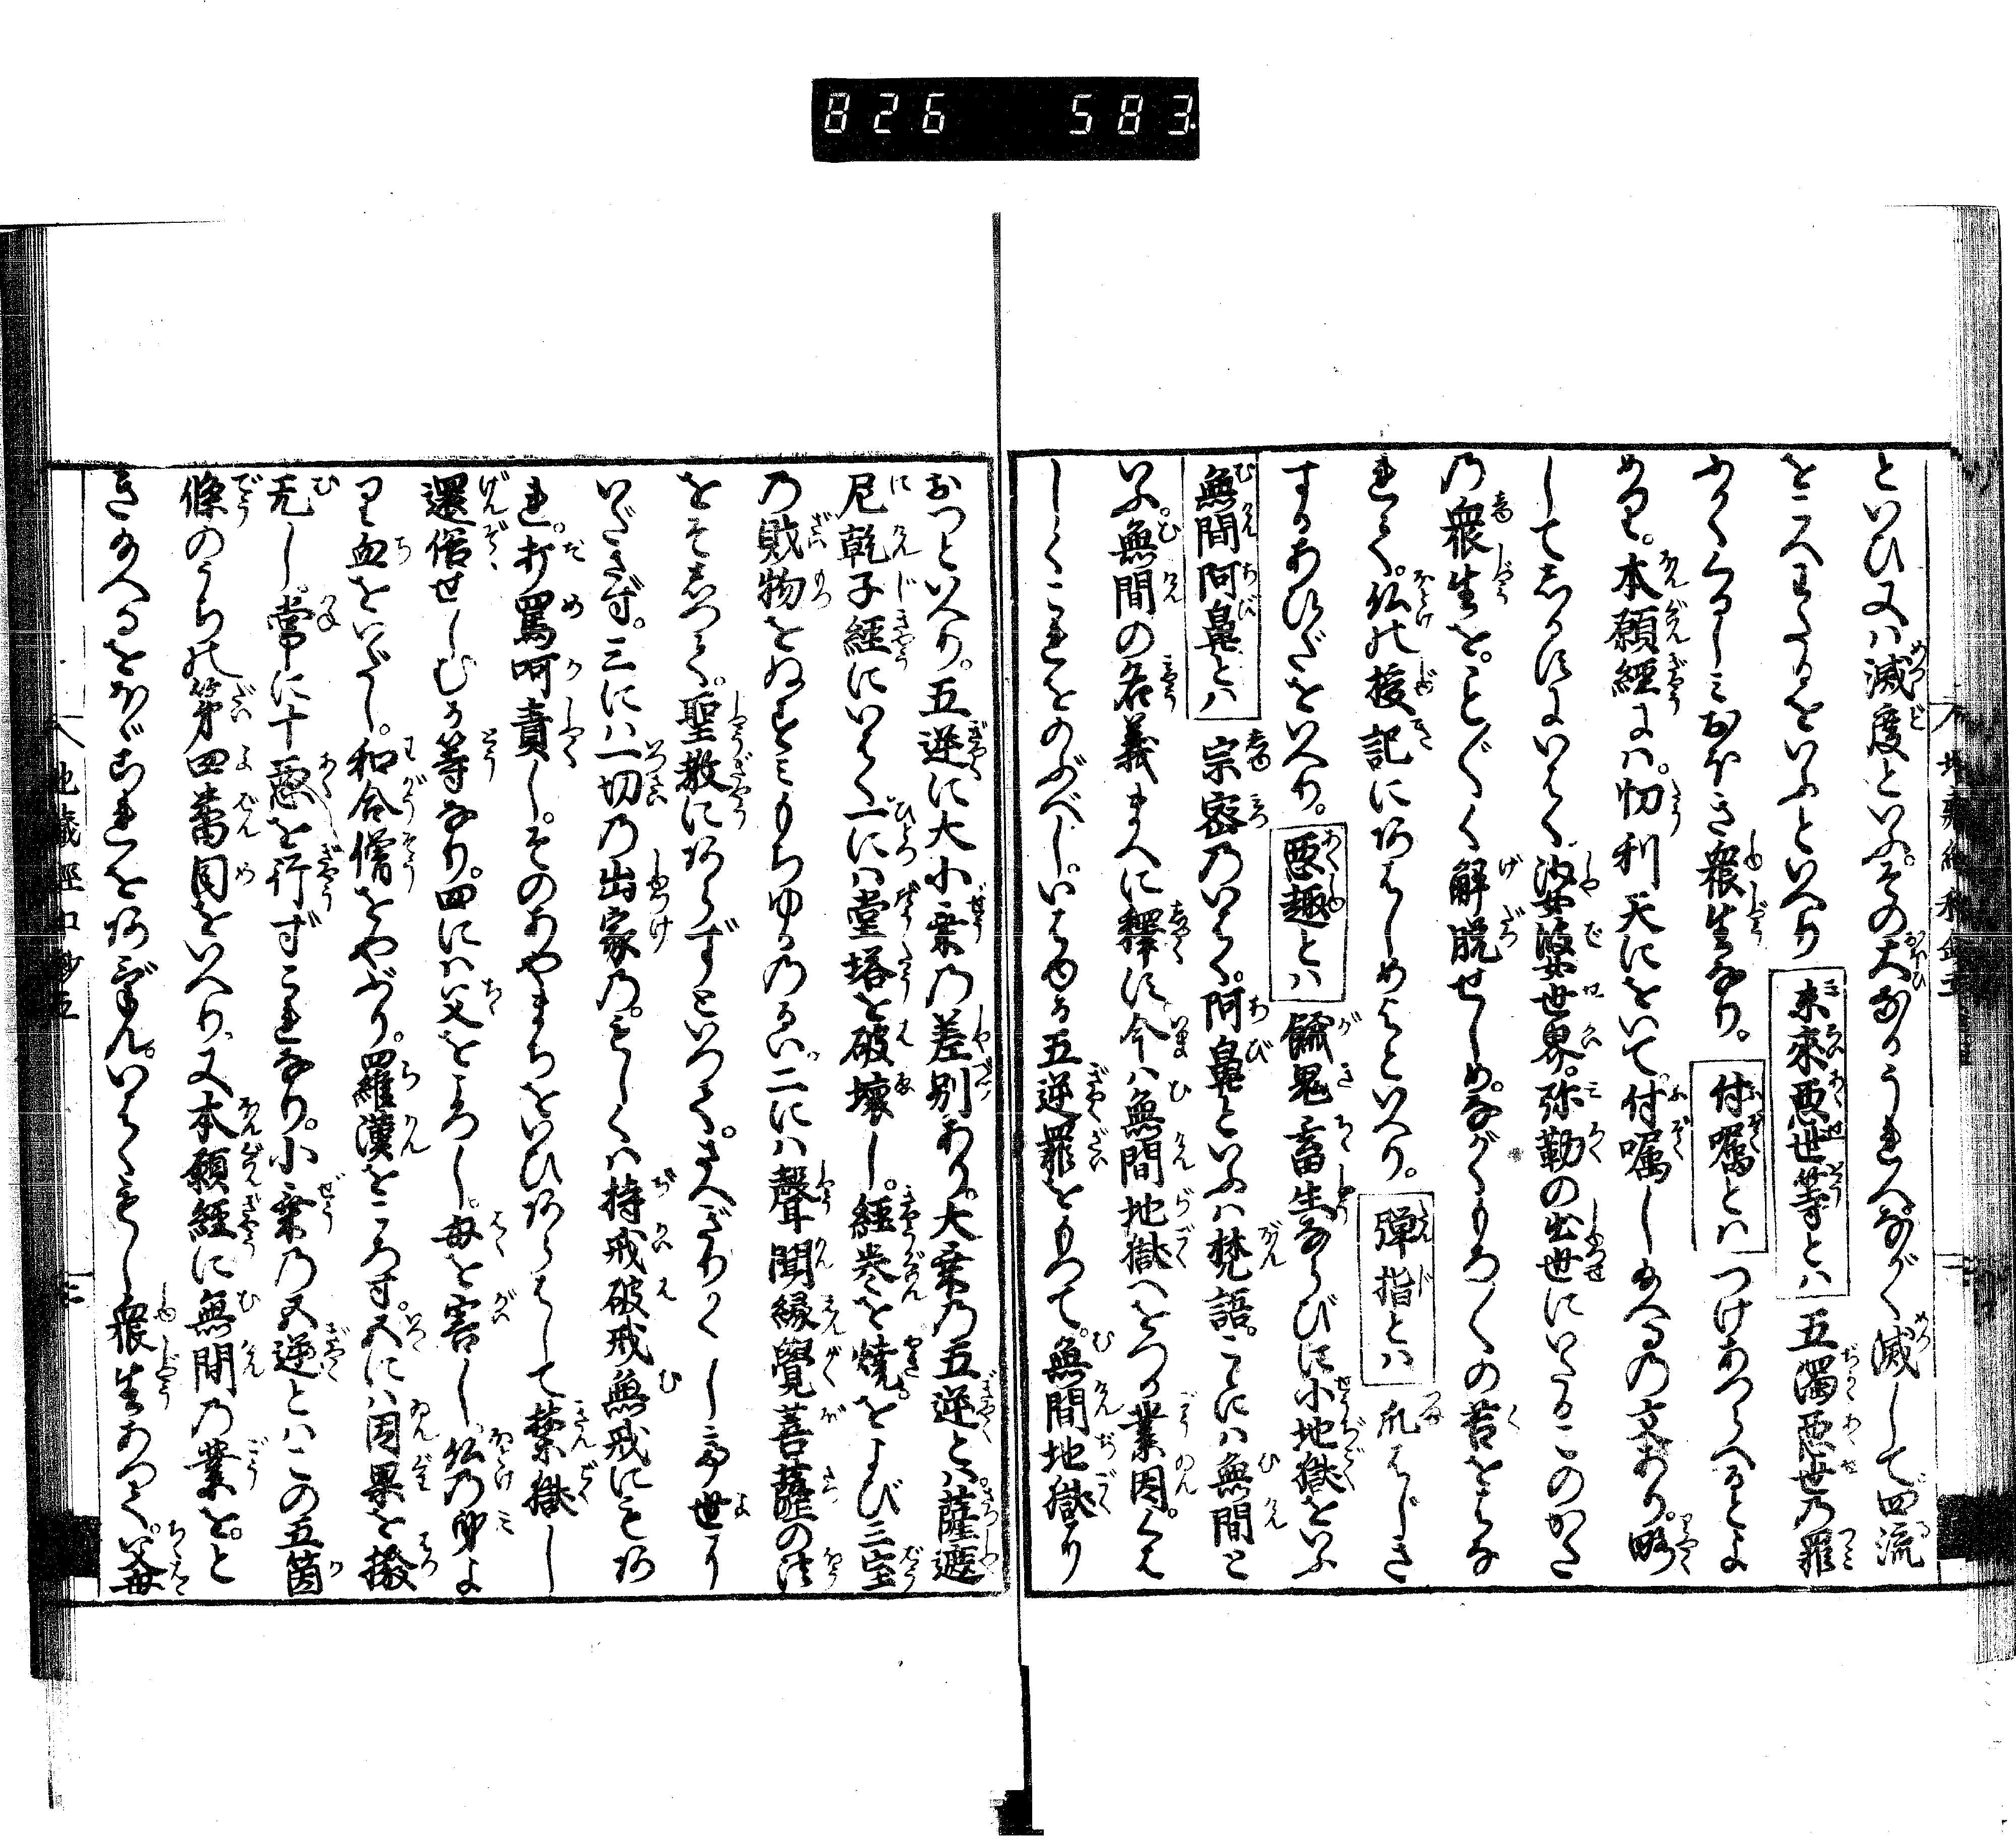 826 583
といひ又ハ滅度といふ。その大なるうれへながく滅して四流
をこへわたるをいふといへり 未來悪世等とハ 五濁悪世乃罪
ふかくくるしミおほき衆生なり。 付囑とハ つけあつらへるとよ
めり。本願經よハ。忉利天にをいて。付囑し給へるの文あり。略
してしるすにいはく。娑婆世界。弥勒の出世にいたるこのかた
乃衆生を。ことごとく解脱せしめ。ながくもろ〳〵の苦をはな
れて。仏の授記にあはしめよといへり。 弾指とハ 爪はじき
するあひだをいへり。 悪趣とハ 餓鬼畜生ならびに小地獄をいふ
無間阿鼻とハ 宗密乃いはく。阿鼻といふハ梵語。こゝにハ無間と
いふ。無間の名義まへに釋す。今ハ無間地獄へをつる業因。くは
しくこれをのぶべし。いはゆる五逆罪をもつて。無間地獄り
おつといへり。五逆に大小乗乃差別あり。大乗乃五逆とハ。薩遮
尼乾子經にいはく。一にハ堂塔を破壊し。經巻を焼。をよび三宝
乃財物をぬすミもちゆるのるい。二にハ聲聞縁覺菩薩の法
をそしりて。聖教にあらずといつて。さへぎりかくし。この世り
いだきず。三にハ一切乃出家乃。もしくハ持戒破戒無戒にもあ
れ。打罵呵責し。そのあやまちをいひあらはして禁獄し
還俗せしむる等なり。四にハ父をころし。母を害し。仏乃身よ
り血をいだし。和合僧をやぶり。羅漢をころす。五にハ因果を撥
无し。常に十悪を行ずこれなり。小乗乃五逆とハこの五箇
條のうちの第四番目をいへり。又本願經に無間乃業を。と
き給へるをかぞこれをあげん。いはくもし衆生あつて。父母
地蔵經和鈔五